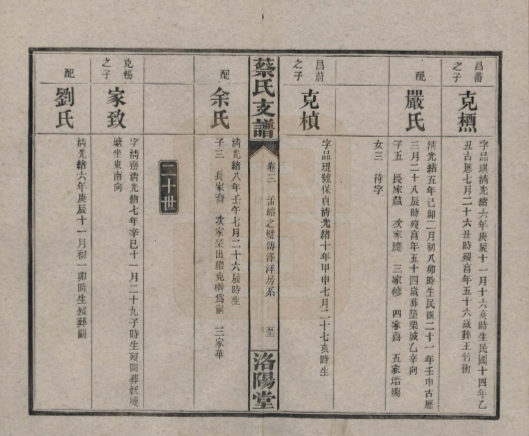 昌蕃之子
克櫄
字品璟淸光緒六年庚辰十一月十六亥時生民國十四年乙
丑古曆七月二十六丑時歿高年五十六歲葬王竹衝
配
嚴氏
淸光緒五年己卯二月初八卯時生民國二十一年壬申古歷
三月二十八辰時歿高年五十四歲葬壟梁城乙辛向
子五 長家 次家 三家修 四家喜 五家培
女三 待字
昌蔚之子
克楨
字品琨號保貞淸光緒十年甲申七月二十七亥時生
蔡氏支譜
卷三
房系
洛陽堂
配
余氏
淸光緒八年壬午七月二十六辰時生
子三 長家喬 次家榮出繼克 爲嗣 三家華
二十世
克暢之子
家致
字淸 淸光緒七年辛巳十一月二十九子時生歿 葬
坐東南向
配
劉氏
淸光緒六年庚辰十一月初一卯時生歿葬闕